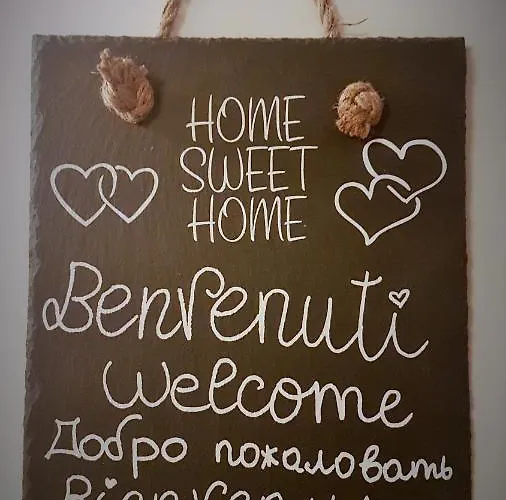 HOME
SWEET
HOME
Benvenuti
Welcome
Добро пожаловать